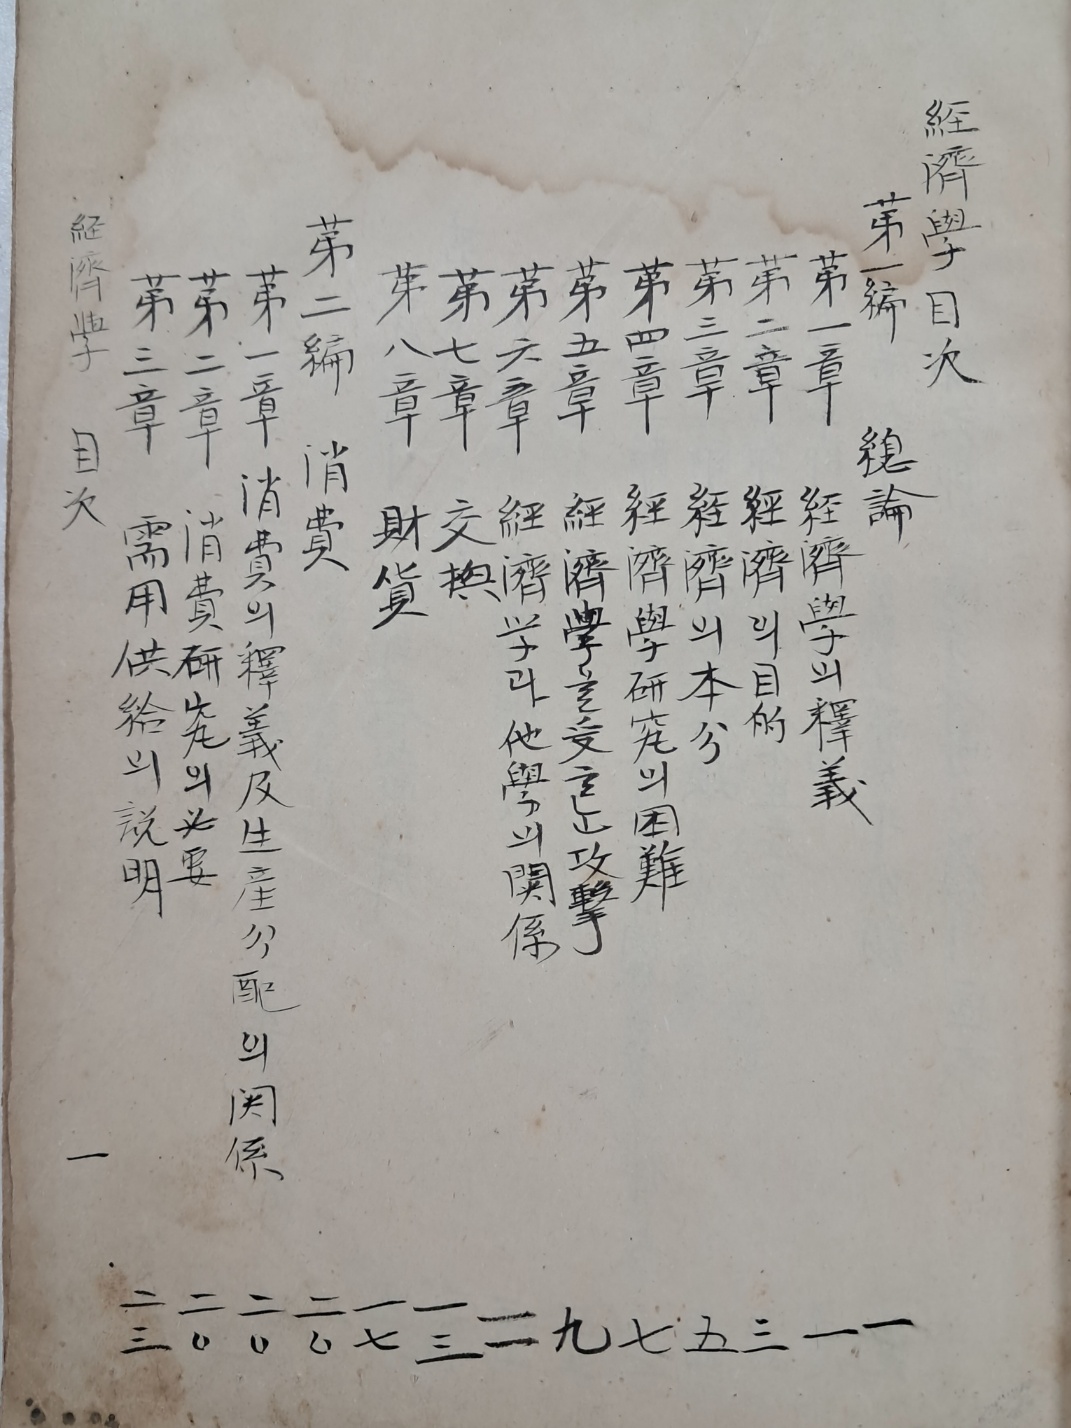 經濟學目次
第一編 總論 一
第一章 經濟學의釋義 一
第二章 經濟의目的 三
第三章 經濟의本分 五
第四章 經濟學研究의困難 七
第五章 經濟學을受한攻擊 九
第六章 經濟学과他學의関係 一二
第七章 交換 一三
第八章 財貨 一七
第二編 消費 二〇
第一章 消費의釋義及生産分配의関係 二〇
第二章 消費研究의必要 二〇
第三章 需用供給의説明 二三
経濟學 目次 一